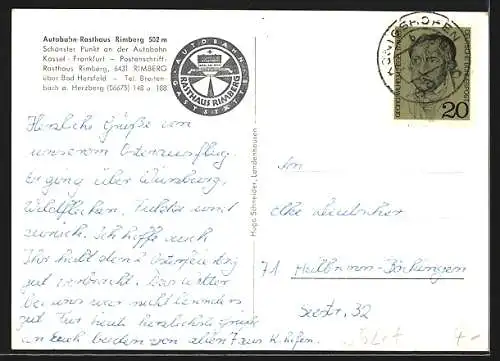 Autobahn-Rasthaus Rimberg 502 m
Schönster Punkt an der Autobahn
Kassel - Frankfurt - Postanschrift:
Rasthaus Rimberg, 6431 RIMBERG
über Bad Hersfeld - Tel. Breiten-
bach a. Herzberg (06675) 148 u. 188
AUTOBAHN
RASTHAUS RIMBERG
GASTSTÄTTE
KÖNIGSHOFEN
DEUTSCHE BUNDESPOST
20
Herzliche Grüße von
unserem Osterausflug.
Er ging über Würzburg,
Wildflecken, Fulda und
zurück. Ich hoffe auch
Ihr habt den 2. Osterfeiertag
gut verbracht. Das Wetter
bei uns war nicht besonders
gut. Für heute herzlichste Grüße
an Euch beiden von allen
Hugo Schneider, Landenhausen
An
Elke
71 Heilbronn-Böckingen
Seestr. 32